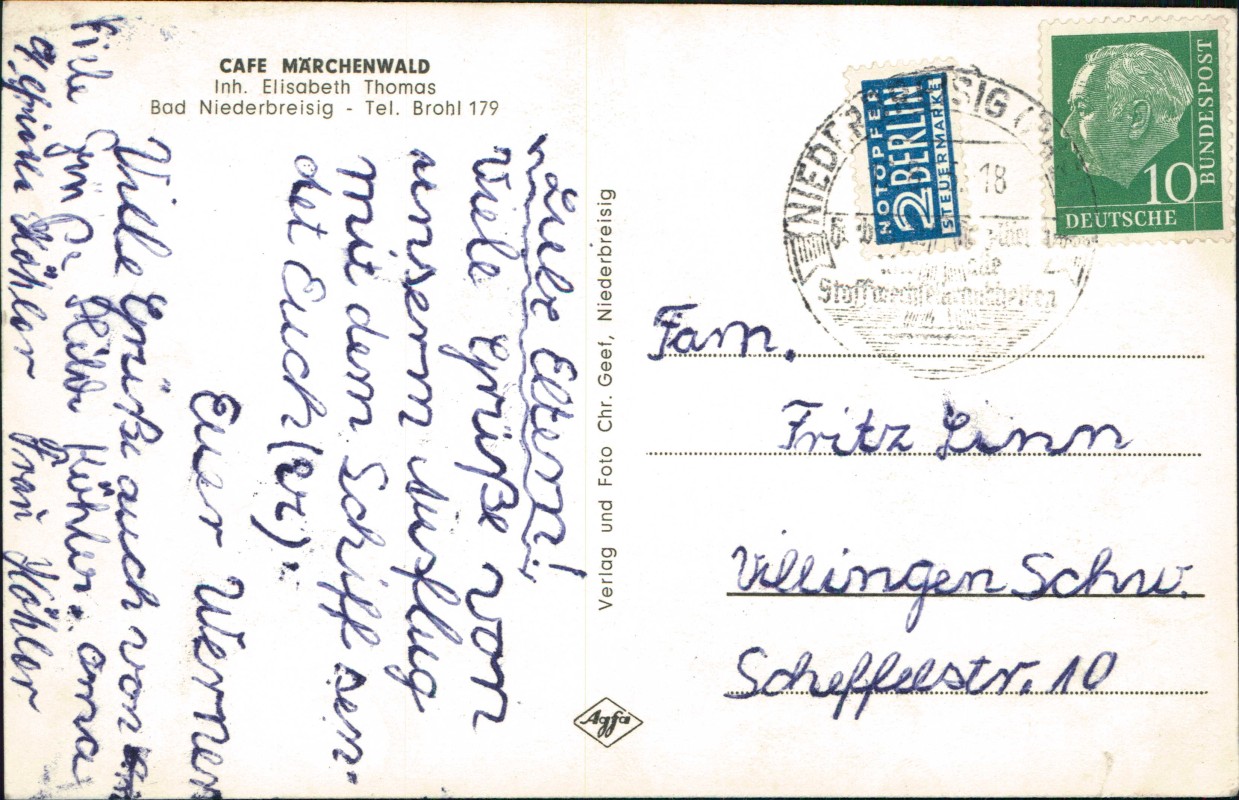 CAFE MÄRCHENWALD
Inh. Elisabeth Thomas
Bad Niederbreisig - Tel. Brohl 179
Liebe Eltern!
Viele Grüße von
unserm Ausflug
mit dem Schiff sen-
det Euch (er).
Euer Werner
Viele Grüße auch von
Viele
Köhler
Frau Köhler
Verlag und Foto Chr. Geef, Niederbreisig
Agfa
NOTOPFER
2 BERLIN
STEUERMARKE
DEUTSCHE
BUNDESPOST
10
NIEDERBREISIG
18
Stoffwechselkrankheiten
Fam.
Fritz Linn
Villingen Schw.
Scheffelstr. 10